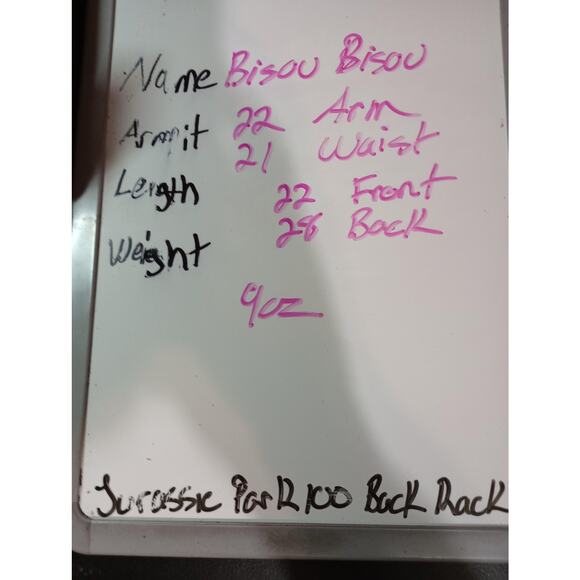 Name Bisou Bisou
Armit 22 Arm
21 Waist
Length 22 Front
28 Back
Weight
9oz
Jurassic Park 100 Back Rack